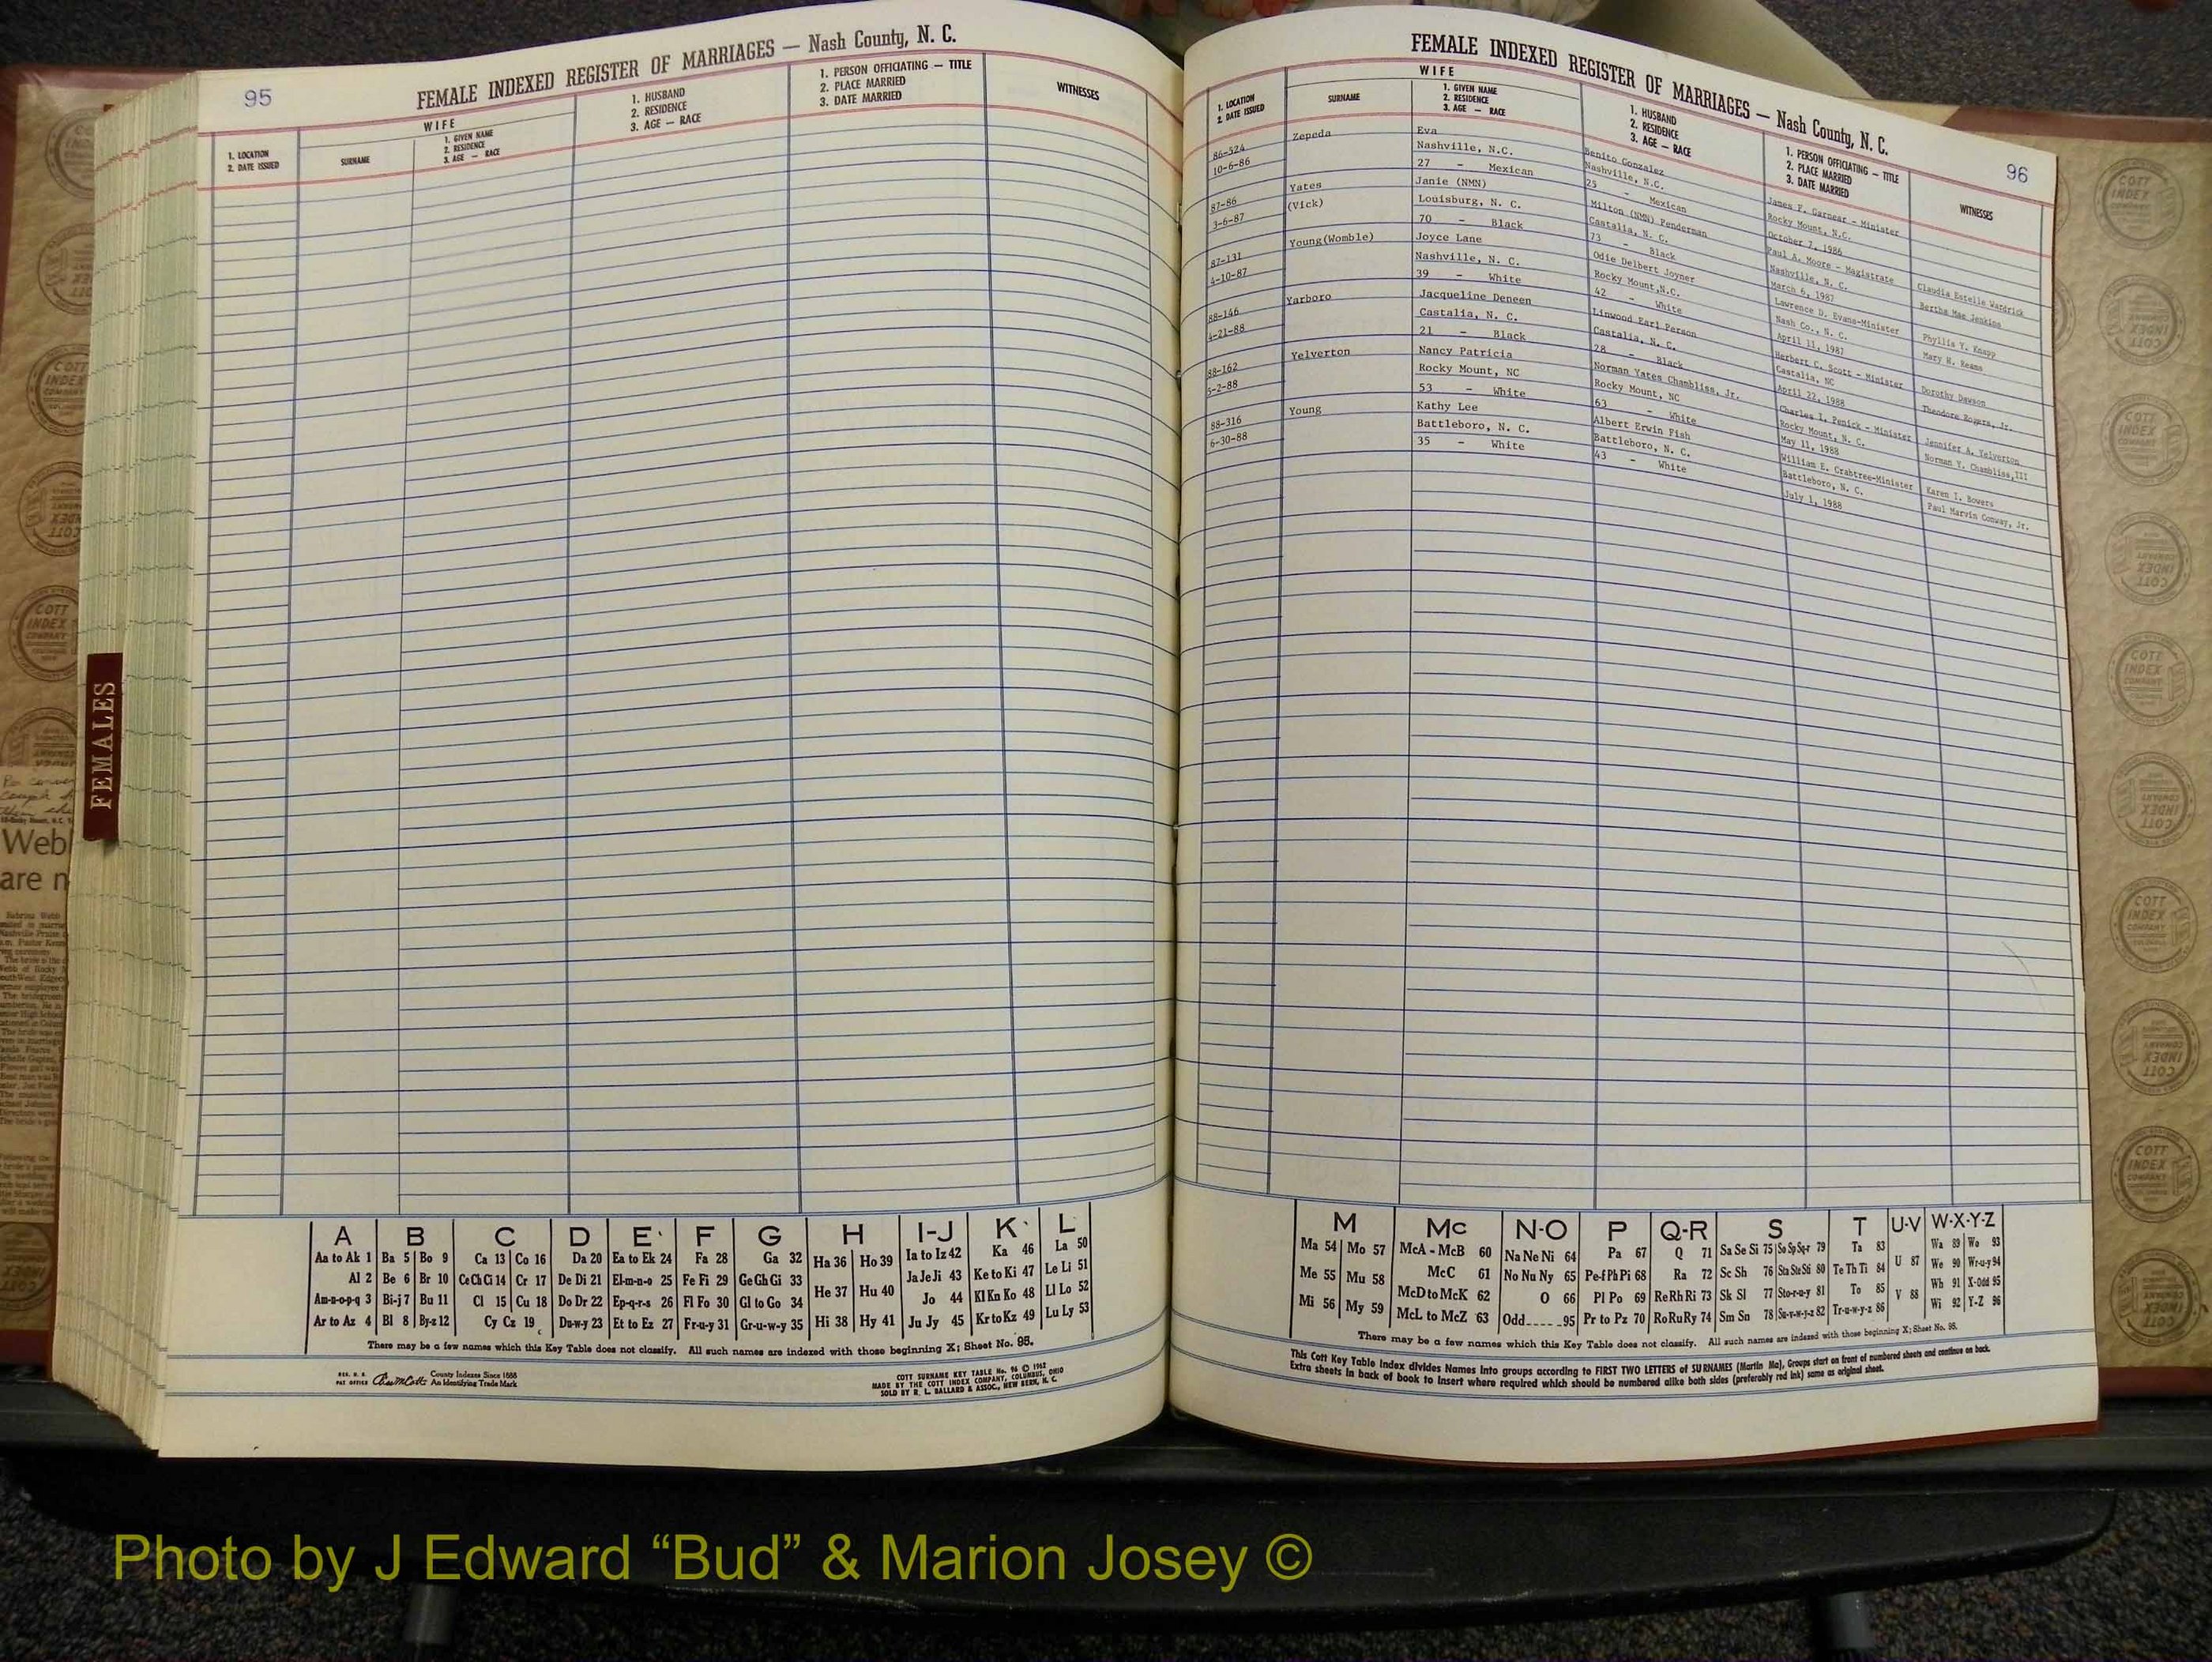 95
FEMALE INDEXED REGISTER OF MARRIAGES — Nash County, N. C.
1. LOCATION
2. DATE ISSUED
WIFE
SURNAME
1. GIVEN NAME
2. RESIDENCE
3. AGE — RACE
1. HUSBAND
2. RESIDENCE
3. AGE — RACE
1. PERSON OFFICIATING — TITLE
2. PLACE MARRIED
3. DATE MARRIED
WITNESSES
FEMALES
Webb
are n
A B C D E F G H I-J K L
Aa to Ak 1 Ba 5 Bo 9 Ca 13 Co 16 Da 20 Ea to Ek 24 Fa 28 Ga 32 Ha 36 Ho 39 Ia to Iz 42 Ka 46 La 50
Al 2 Be 6 Br 10 Ce Ch Ci 14 Cr 17 De Di 21 El-m-n-o 25 Fe Fi 29 Ge Gh Gi 33 He 37 Hu 40 Ja Je Ji 43 Ke to Ki 47 Le Li 51
Am-n-o-p-q 3 Bi-j 7 Bu 11 Cl 15 Cu 18 Do Dr 22 Ep-q-r-s 26 Fl Fo 30 Gl to Go 34 Hi 38 Hy 41 Jo 44 Kl Kn Ko 48 Ll Lo 52
Ar to Az 4 Bl 8 By-z 12 Cy Cz 19 Du-w-y 23 Et to Ez 27 Fr-u-y 31 Gr-u-w-y 35 Ju Jy 45 Kr to Kz 49 Lu Ly 53
There may be a few names which this Key Table does not classify. All such names are indexed with those beginning X; Sheet No. 95.
REG. U. S.
PAT OFFICE
County Indexes Since 1888
An Identifying Trade Mark
COTT SURNAME KEY TABLE No. 96 © 1962
MADE BY THE COTT INDEX COMPANY, COLUMBUS, OHIO
SOLD BY R. L. BALLARD & ASSOC., NEW BERN, N. C.
FEMALE INDEXED REGISTER OF MARRIAGES — Nash County, N. C.
96
1. LOCATION
2. DATE ISSUED
WIFE
SURNAME
1. GIVEN NAME
2. RESIDENCE
3. AGE — RACE
1. HUSBAND
2. RESIDENCE
3. AGE — RACE
1. PERSON OFFICIATING — TITLE
2. PLACE MARRIED
3. DATE MARRIED
WITNESSES
86-524 Zepeda Eva Benito Gonzalez James F. Garnear - Minister
10-6-86 Nashville, N.C. Nashville, N.C. Rocky Mount, N.C.
27 - Mexican 25 - Mexican October 7, 1986
87-86 Yates Janie (NMN) Milton (NMN) Penderman Paul A. Moore - Magistrate Claudia Estelle Wardrick
3-6-87 (Vick) Louisburg, N. C. Castalia, N. C. Nashville, N. C. Bertha Mae Jenkins
70 - Black 73 - Black March 6, 1987
87-131 Young(Womble) Joyce Lane Odie Delbert Joyner Lawrence D. Evans-Minister Phyllis Y. Knapp
4-10-87 Nashville, N. C. Rocky Mount,N.C. Nash Co., N. C. Mary H. Reams
39 - White 42 - White April 11, 1987
88-146 Yarboro Jacqueline Deneen Linwood Earl Person Herbert C. Scott - Minister Dorothy Dawson
4-21-88 Castalia, N. C. Castalia, N. C. Castalia, NC Theodore Rogers, Jr.
21 - Black 28 - Black April 22, 1988
88-162 Yelverton Nancy Patricia Norman Yates Chambliss, Jr. Charles I. Penick - Minister Jennifer A. Yelverton
5-2-88 Rocky Mount, NC Rocky Mount, NC Rocky Mount, N. C. Norman Y. Chambliss,III
53 - White 63 - White May 11, 1988
88-316 Young Kathy Lee Albert Erwin Fish William E. Crabtree-Minister Karen I. Bowers
6-30-88 Battleboro, N. C. Battleboro, N. C. Battleboro, N. C. Paul Marvin Conway, Jr.
35 - White 43 - White July 1, 1988
M Mc N-O P Q-R S T U-V W-X-Y-Z
Ma 54 Mo 57 McA - McB 60 Na Ne Ni 64 Pa 67 Q 71 Sa Se Si 75 So Sp Sq-r 79 Ta 83 U 87 Wa 89 Wo 93
Me 55 Mu 58 McC 61 No Nu Ny 65 Pe-f Ph Pi 68 Ra 72 Sc Sh 76 Sta Ste Sti 80 Te Th Ti 84 V 88 We 90 Wr-u-y 94
Mi 56 My 59 McD to McK 62 O 66 Pl Po 69 Re Rh Ri 73 Sk Sl 77 Sto-r-u-y 81 To 85 Wh 91 X-Odd 95
McL to McZ 63 Odd 95 Pr to Pz 70 Ro Ru Ry 74 Sm Sn 78 Su-v-w-y-z 82 Tr-u-w-y-z 86 Wi 92 Y-Z 96
There may be a few names which this Key Table does not classify. All such names are indexed with those beginning X; Sheet No. 95.
This Cott Key Table Index divides Names into groups according to FIRST TWO LETTERS of SURNAMES (Martin Ma), Groups start on front of numbered sheets and continue on back.
Extra sheets in back of book to insert where required which should be numbered alike both sides (preferably red ink) same as original sheet.
COTT
INDEX
COMPANY
Photo by J Edward “Bud” & Marion Josey ©